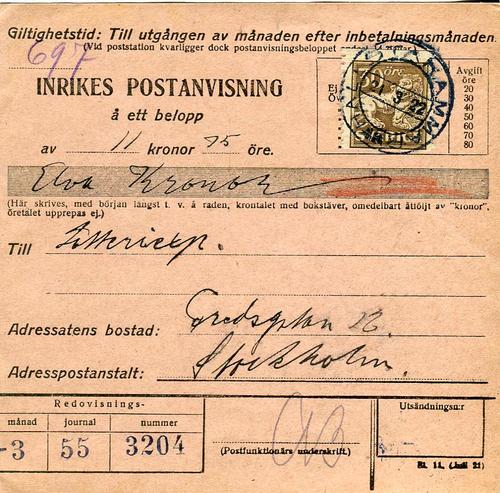 Giltighetstid: Till utgången av månaden efter inbetalningsmånaden.
(Vid poststation kvarligger dock postanvisningsbeloppet
697
INRIKES POSTANVISNING
å ett belopp
av 11 kronor 75 öre.
Avgift
öre
20
30
40
50
60
70
80
öre
21 3 22
Elva Kronor
(Här skrives, med början längst t. v. å raden, krontalet med bokstäver, omedelbart åtföljt av "kronor",
öretalet upprepas ej.)
Till
Adressatens bostad: Fredsgatan
Adresspostanstalt: Stockholm.
Redovisnings-
månad journal nummer
-3 55 3204
(Postfunktionärs underskrift.)
Utsändningsn:r
Bl. 11. (Juli 21)